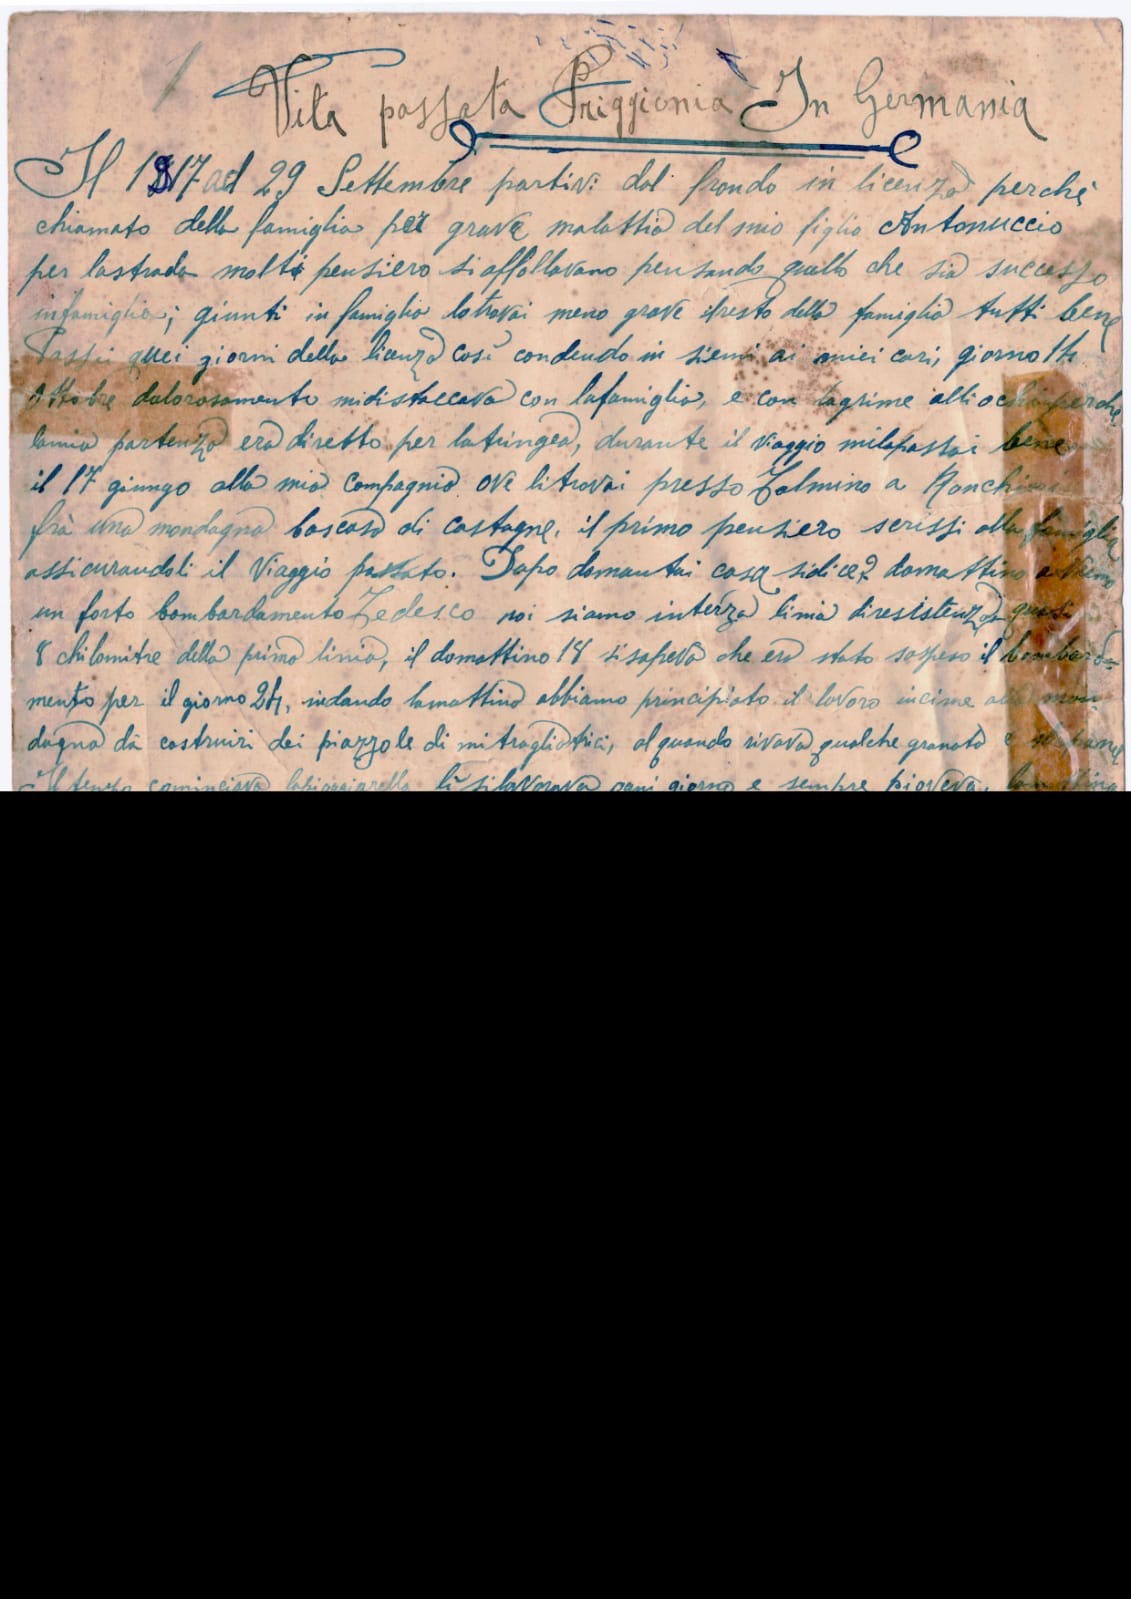 Vita passata Priggionia In Germania
Il 1917 ad 29 Settembre partivi dal frondo in licenza perchè
chiamato della famiglia per grave malattia del mio figlio Antonuccio
per lastrada molti pensiero si affollavano pensando quello che sia successo
infamiglia; giunti in famiglia lotrovai meno grave ilresto della famiglia tutti bene
Passai quei giorni della licenza così condendo in siemi ai miei cari, giorno 14
ottobre dolorosamente midistaccava con lafamiglia, e con lagrime alli occhi perchè
lamia partenza era diretto per latringea, durante il viaggio milapassai bene
il 17 giungo alla mia compagnia ove litrovai presso Tolmino a
frà una mondagna boscosa di castagne, il primo pensiero scrissi alla famiglia
assicurandoli il Viaggio passato. Dopo domantai cosa sidice? domattina
un forto bombardamento Tedesco noi siamo interza linia diresistenza quasi
8 chilomitre della prima linia, il domattino 18 sisapeva che era stato sospeso il bombarda=
mento per il giorno 24, indando lamattina abbiamo principiato il lavoro incime alla mon
dagna dà costruiri dei piazzole di mitragliatrici, alquando rivava qualche granata e
Il tempo cominciava lapioggiarella lì silavorava ogni giorno e sempre pioveva, lamattina